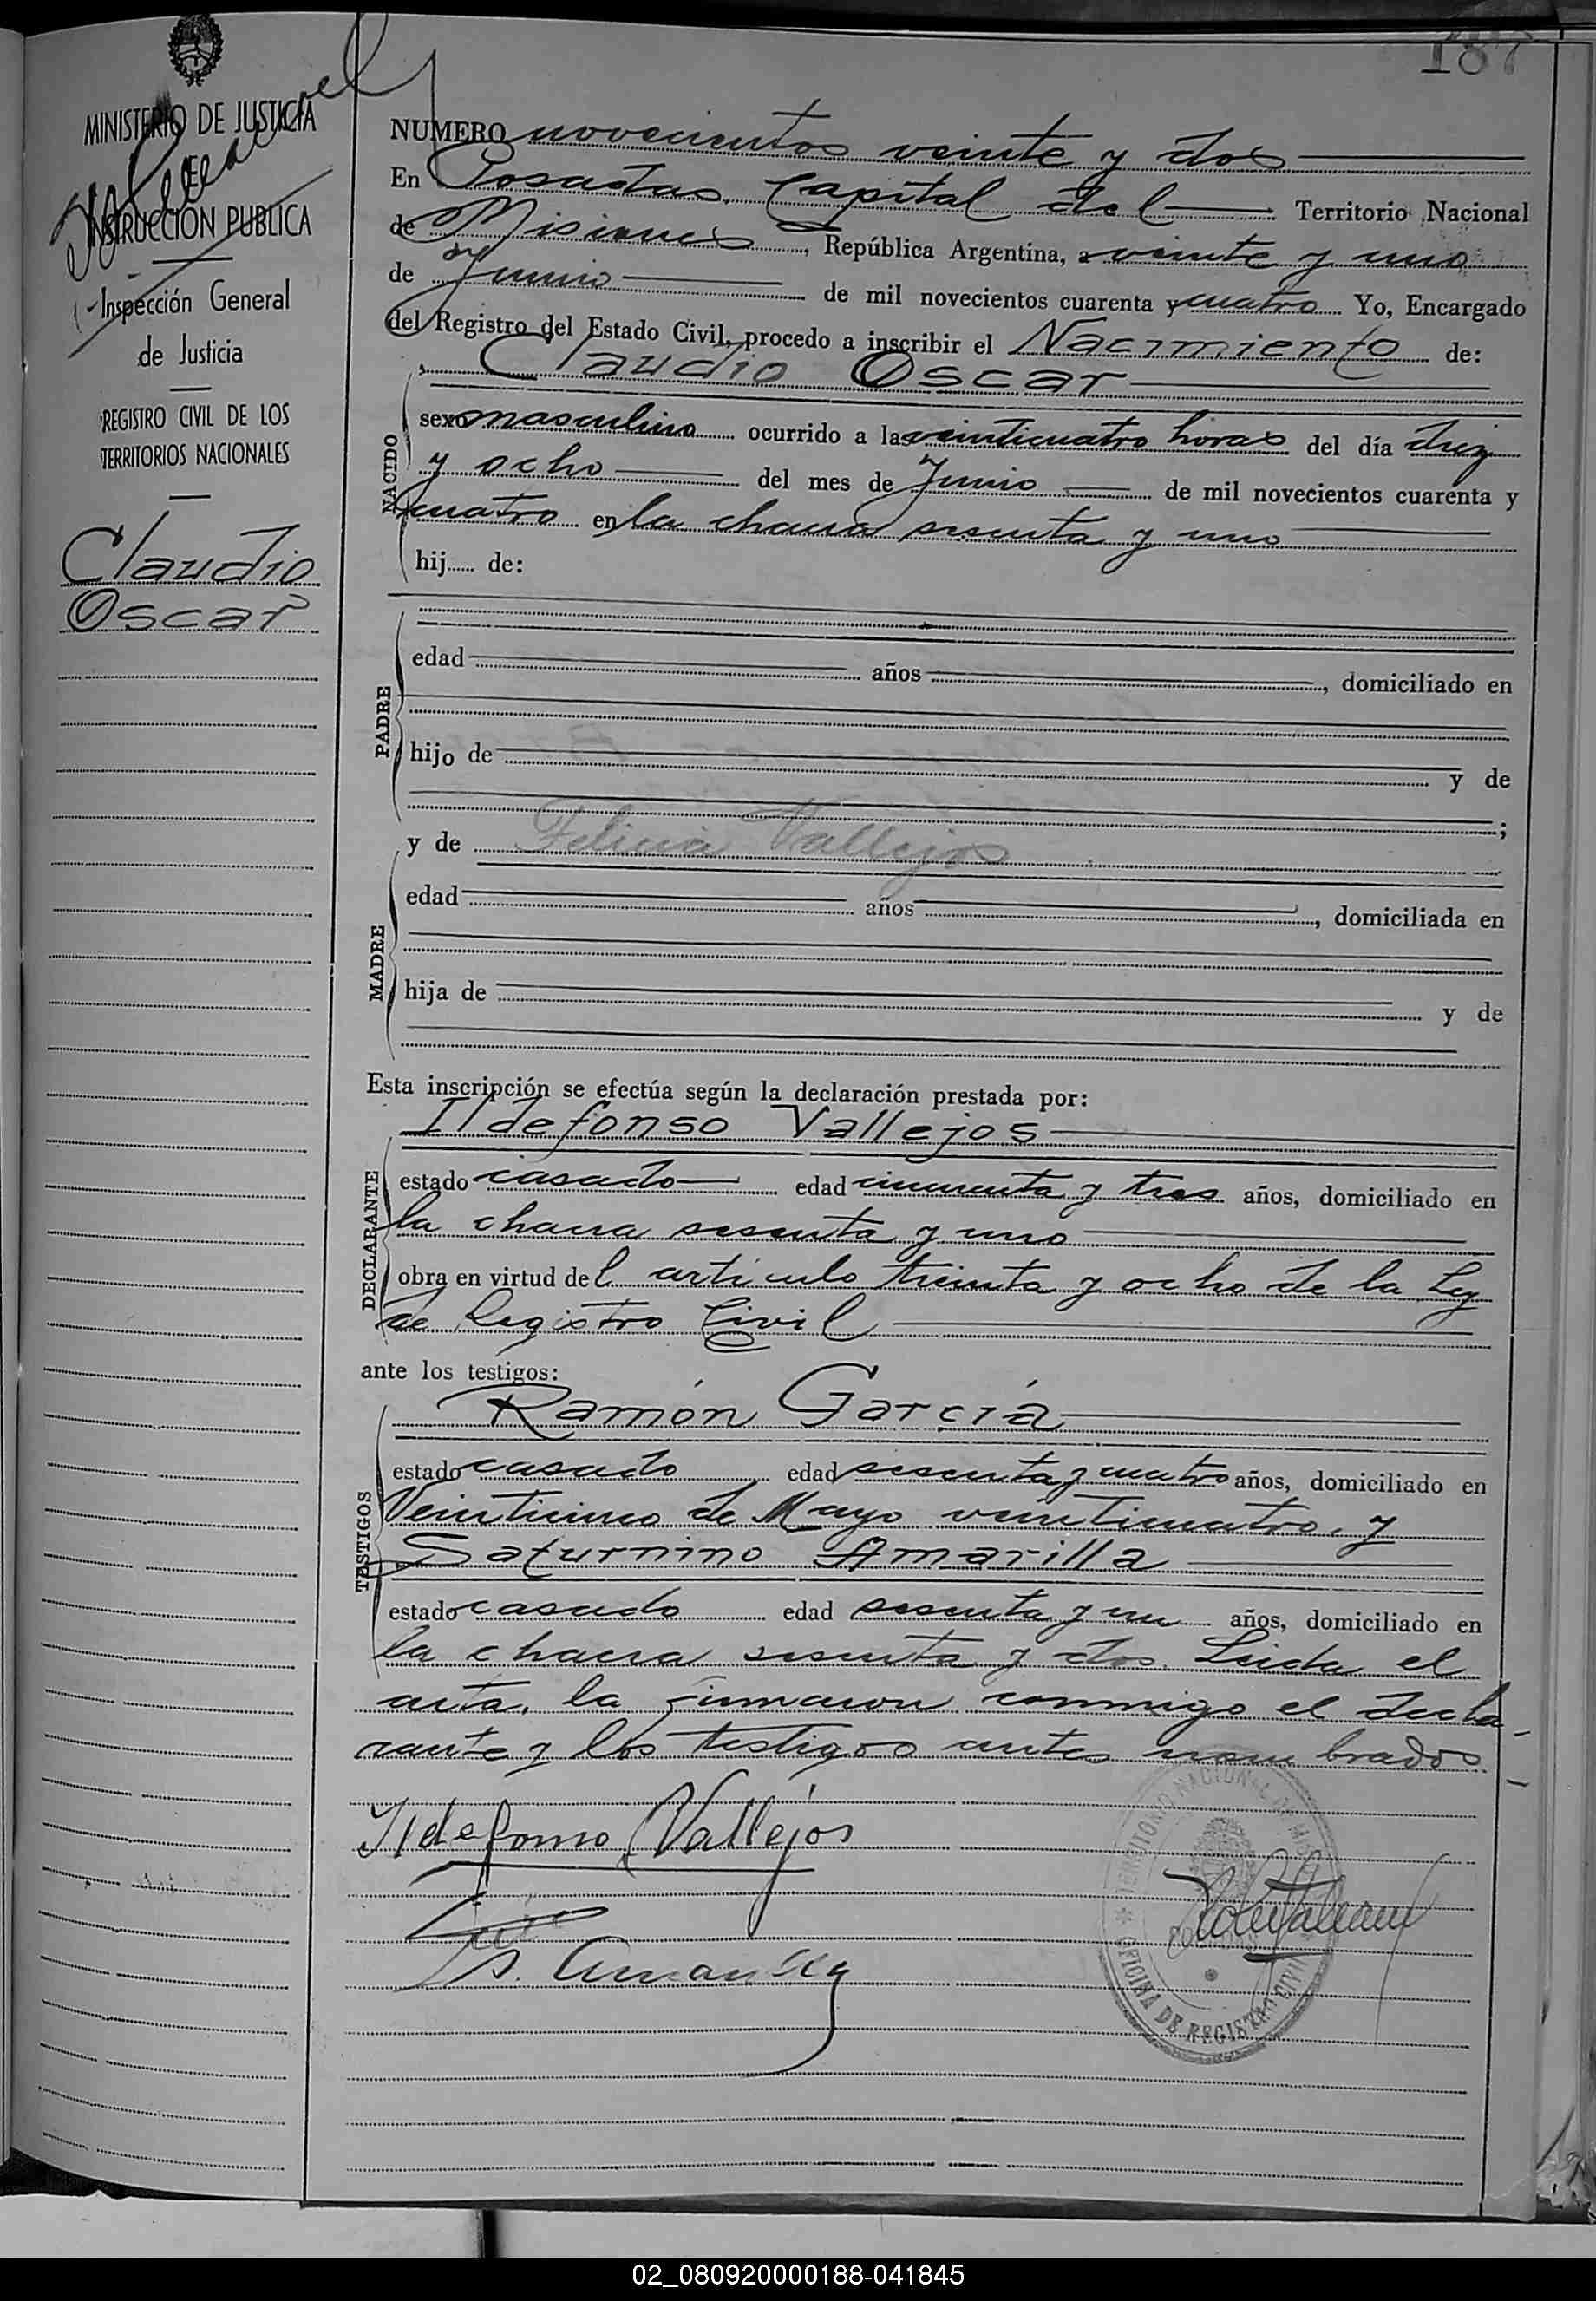 187
MINISTERIO DE JUSTICIA
E
INSTRUCCIÓN PUBLICA
Inspección General
de Justicia
REGISTRO CIVIL DE LOS
TERRITORIOS NACIONALES
Claudio
Oscar
NUMERO novecientos veinte y dos
En Posadas, Capital del Territorio Nacional
de Misiones, República Argentina, a veinte y uno
de Junio de mil novecientos cuarenta y cuatro Yo, Encargado
del Registro del Estado Civil, procedo a inscribir el Nacimiento de:
Claudio Oscar
NACIDO
sexo masculino ocurrido a las veinticuatro horas del día diez
y ocho del mes de Junio de mil novecientos cuarenta y
cuatro en la chacra sesenta y uno
hij...... de:
PADRE
edad años, domiciliado en
hijo de y de
;
y de Felicia Vallejos
MADRE
edad años, domiciliada en
hija de y de
Esta inscripción se efectúa según la declaración prestada por:
Ildefonso Vallejos
DECLARANTE
estado casado edad cincuenta y tres años, domiciliado en
la chacra sesenta y uno
obra en virtud del artículo treinta y ocho de la Ley
de Registro Civil
ante los testigos:
Ramón García
TESTIGOS
estado casado edad sesenta y cuatro años, domiciliado en
Veinticinco de Mayo veinticuatro, y
Saturnino Amarilla
estado casado edad sesenta y un años, domiciliado en
la chacra sesenta y dos. Leida el
acta, la firmaron conmigo el decla-
rante y los testigos antes nombrados.
Ildefonso Vallejos
S. Amarilla
TERRITORIO NACIONAL DE MISIONES
OFICINA DE REGISTRO CIVIL
02_080920000188-041845